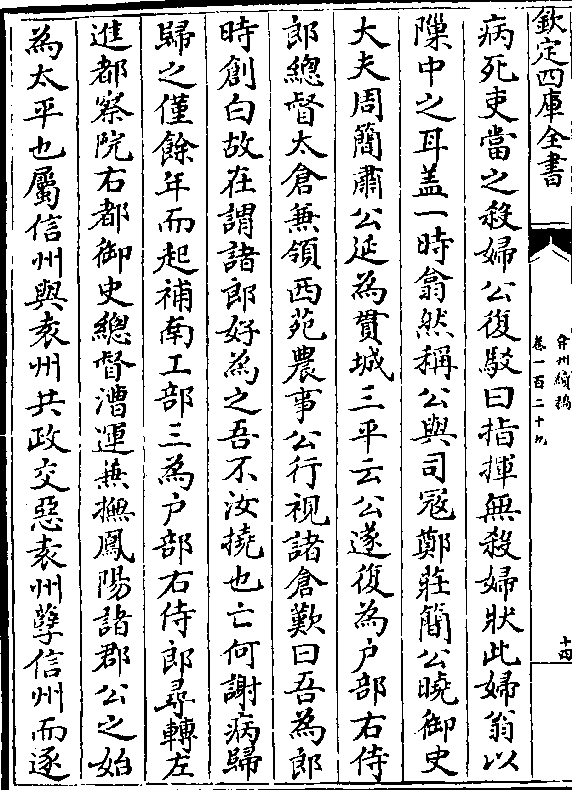 欽定四庫全書
弇州續稿
卷一百二十九
十四
病死吏當之殺婦公復駁曰指揮無殺婦狀此婦翁以
隟中之耳盖一時翕然稱公與司宼鄭莊簡公曉御史
大夫周簡肅公延為貫城三平云公遂復為户部右侍
郎總督太倉兼領西苑農事公行視諸倉歎曰吾為郎
時創白故在謂諸郎好為之吾不汝撓也亡何謝病歸
歸之僅餘年而起補南工部三為户部右侍郎尋轉左
進都察院右都御史總督漕運兼撫鳳陽諸郡公之始
為太平也屬信州與袁州共政交惡袁州孽信州而逐